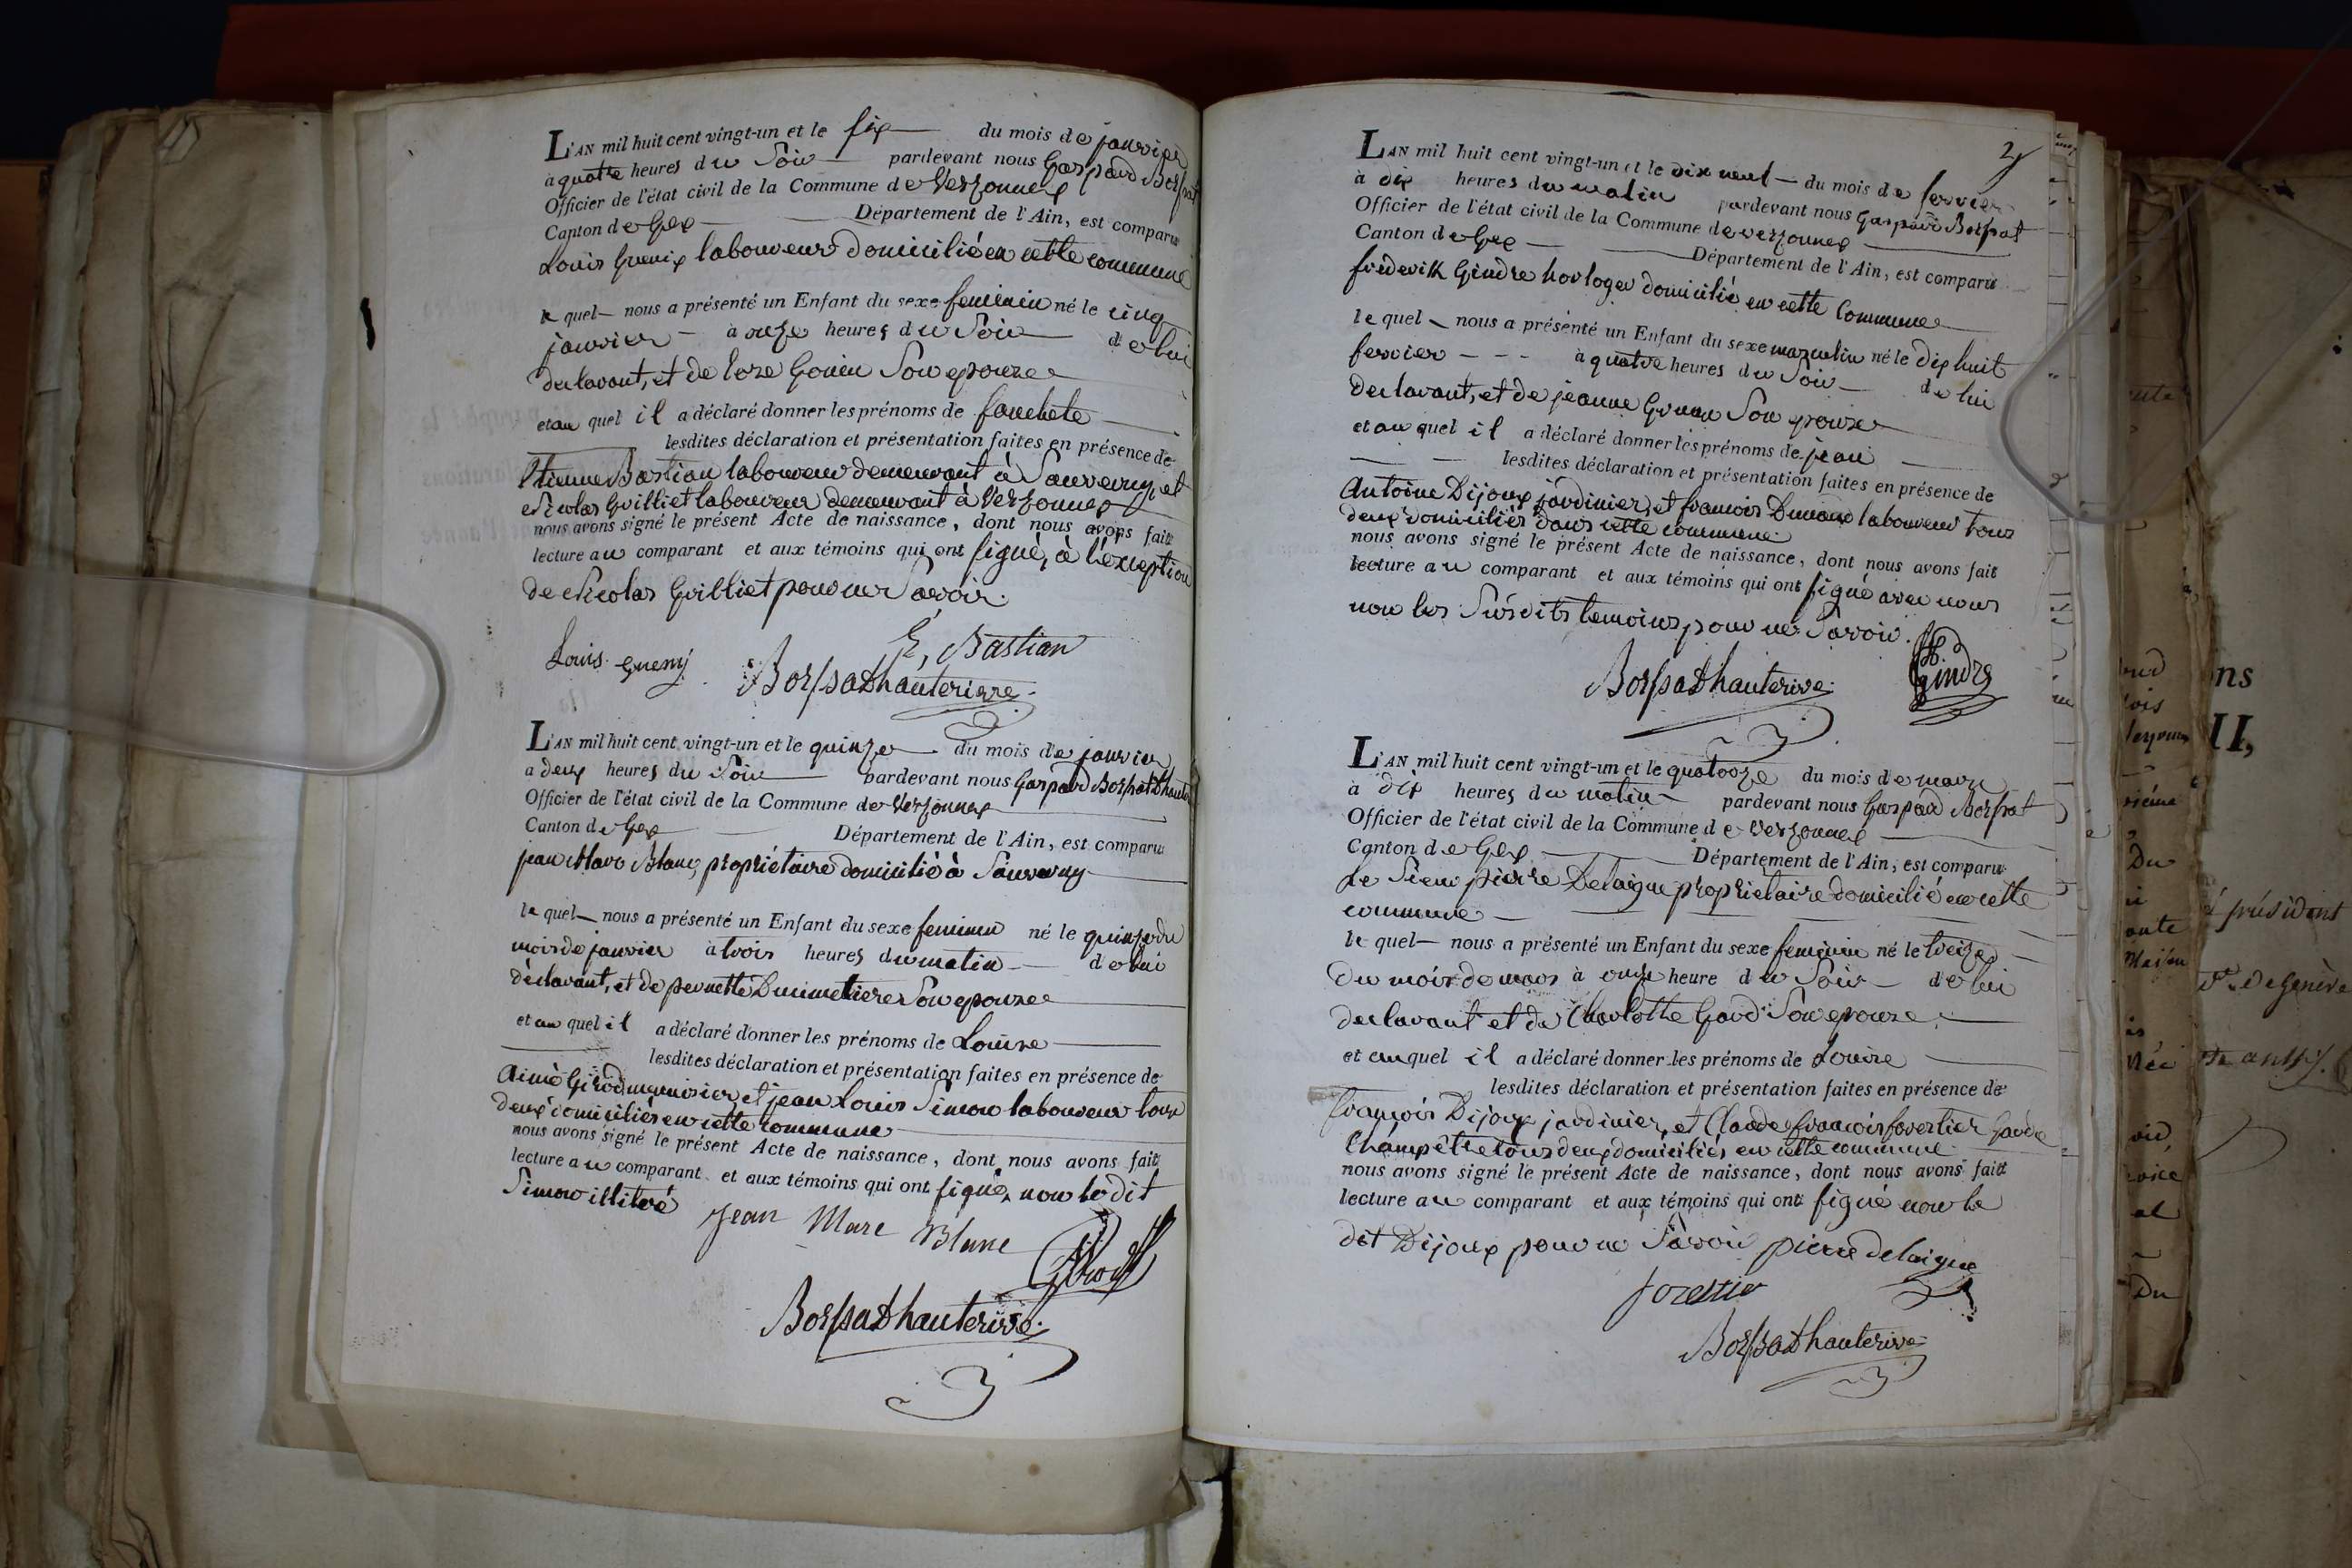 L'AN mil huit cent vingt-un et le six du mois de janvier
à quatre heures du Soir pardevant nous Gaspard Borssat
Officier de l'état civil de la Commune de Versonnex
Canton de Gex Département de l'Ain, est comparu
Louis Guenix laboureur domicilié en cette commune
le quel nous a présenté un Enfant du sexe feminin né le cinq
janvier à onze heures du Soir de lui
declarant, et de Son epouze
et au quel il a déclaré donner les prénoms de fanchete
lesdites déclaration et présentation faites en présence de
Etienne Bastian laboureur demeurant à Sauverny, et
Nicolas Grilliet laboureur demeurant à Versonnex
nous avons signé le présent Acte de naissance, dont nous avons fait
lecture au comparant et aux témoins qui ont signé, à l'exception
de Nicolas Grilliet pour ne Savoir.
E, Bastian
Louis Gueny Borssat Dhauterive
L'AN mil huit cent vingt-un et le quinze du mois de janvier
a deux heures du Soir pardevant nous Gaspard Borssat Dhaute
Officier de l'état civil de la Commune de Versonnex
Canton de Gex Département de l'Ain, est comparu
jean Marc Blanc, propriétaire domicilié à Sauverny
le quel nous a présenté un Enfant du sexe feminin né le quinze du
mois de janvier à trois heures du matin de lui
déclarant, et de pernette Dumetier Son epouze
et au quel il a déclaré donner les prénoms de Louise
lesdites déclaration et présentation faites en présence de
Aimé Girod menuisier, et jean Louis Simon laboureur tous
deux domiciliés en cette commune
nous avons signé le présent Acte de naissance, dont nous avons fait
lecture au comparant et aux témoins qui ont signé, non le dit
Simon illitéré
Jean Marc Blanc Girod
Borssat Dhauterive
2
L'AN mil huit cent vingt-un et le dix neuf du mois de fevrier
à dix heures du matin pardevant nous Gaspard Borssat
Officier de l'état civil de la Commune de versonnex
Canton de Gex Département de l'Ain, est comparu
frederik Gindre horloger domicilié en cette Commune
le quel nous a présenté un Enfant du sexe masculin né le dix huit
fevrier à quatre heures du Soir de lui
declarant, et de jeanne Son epouze
et au quel il a déclaré donner les prénoms de jean
lesdites déclaration et présentation faites en présence de
Antoine Dijoux jardinier, et francois laboureur tous
deux domiciliés dans cette commune
nous avons signé le présent Acte de naissance, dont nous avons fait
lecture au comparant et aux témoins qui ont signé avec nous
non les Susdits temoins pour ne Savoir.
Borssat Dhauterive Gindre
L'AN mil huit cent vingt-un et le quatorze du mois de mars
à dix heures du matin pardevant nous Gaspard Borssat
Officier de l'état civil de la Commune de Versonnex
Canton de Gex Département de l'Ain, est comparu
Le Sieur pierre Delaigue proprietaire domicilié en cette
commune
le quel nous a présenté un Enfant du sexe feminin né le treize
du mois de mars à onze heure du Soir de lui
declarant et de Charlotte Gard Son epouze
et au quel il a déclaré donner les prénoms de Louise
lesdites déclaration et présentation faites en présence de
francois Dijoux jardinier, et Claude francois forestier Garde
Champêtre tous deux domiciliés en cette commune
nous avons signé le présent Acte de naissance, dont nous avons fait
lecture au comparant et aux témoins qui ont signé non le
dit Dijoux pour ne Savoir pierre delaigue
forestier
Borssat Dhauterive
ns
II,
président
de Genève